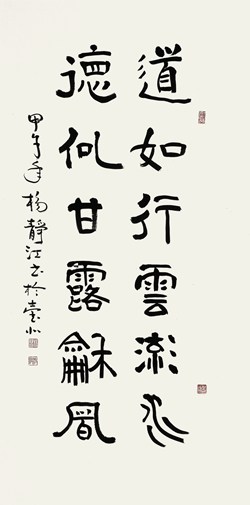 道如行雲流水
德似甘露龢風
甲午年楊靜江書於臺北